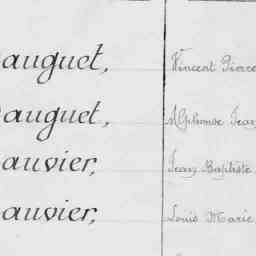 auguet, Vincent Pierre
auguet, Alphonse Jean
auvier, Jean Baptiste
auvier, Louis Marie